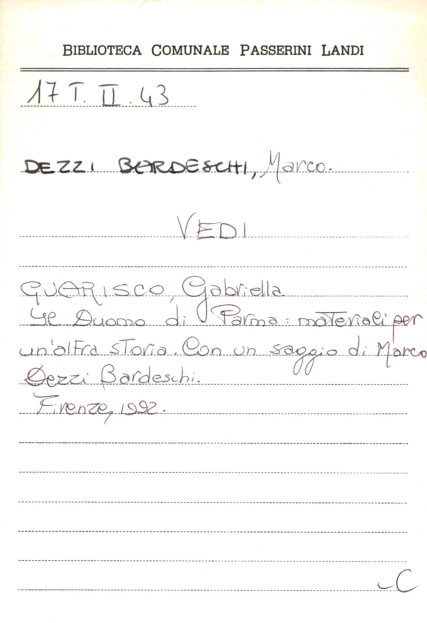 BIBLIOTECA COMUNALE PASSERINI LANDI
17 T. II. 43
DEZZI BARDESCHI, Marco.
VEDI
GUARISCO, Gabriella
Il Duomo di Parma: materiali per
un'altra storia. Con un saggio di Marco
Dezzi Bardeschi.
Firenze, 1992.
C